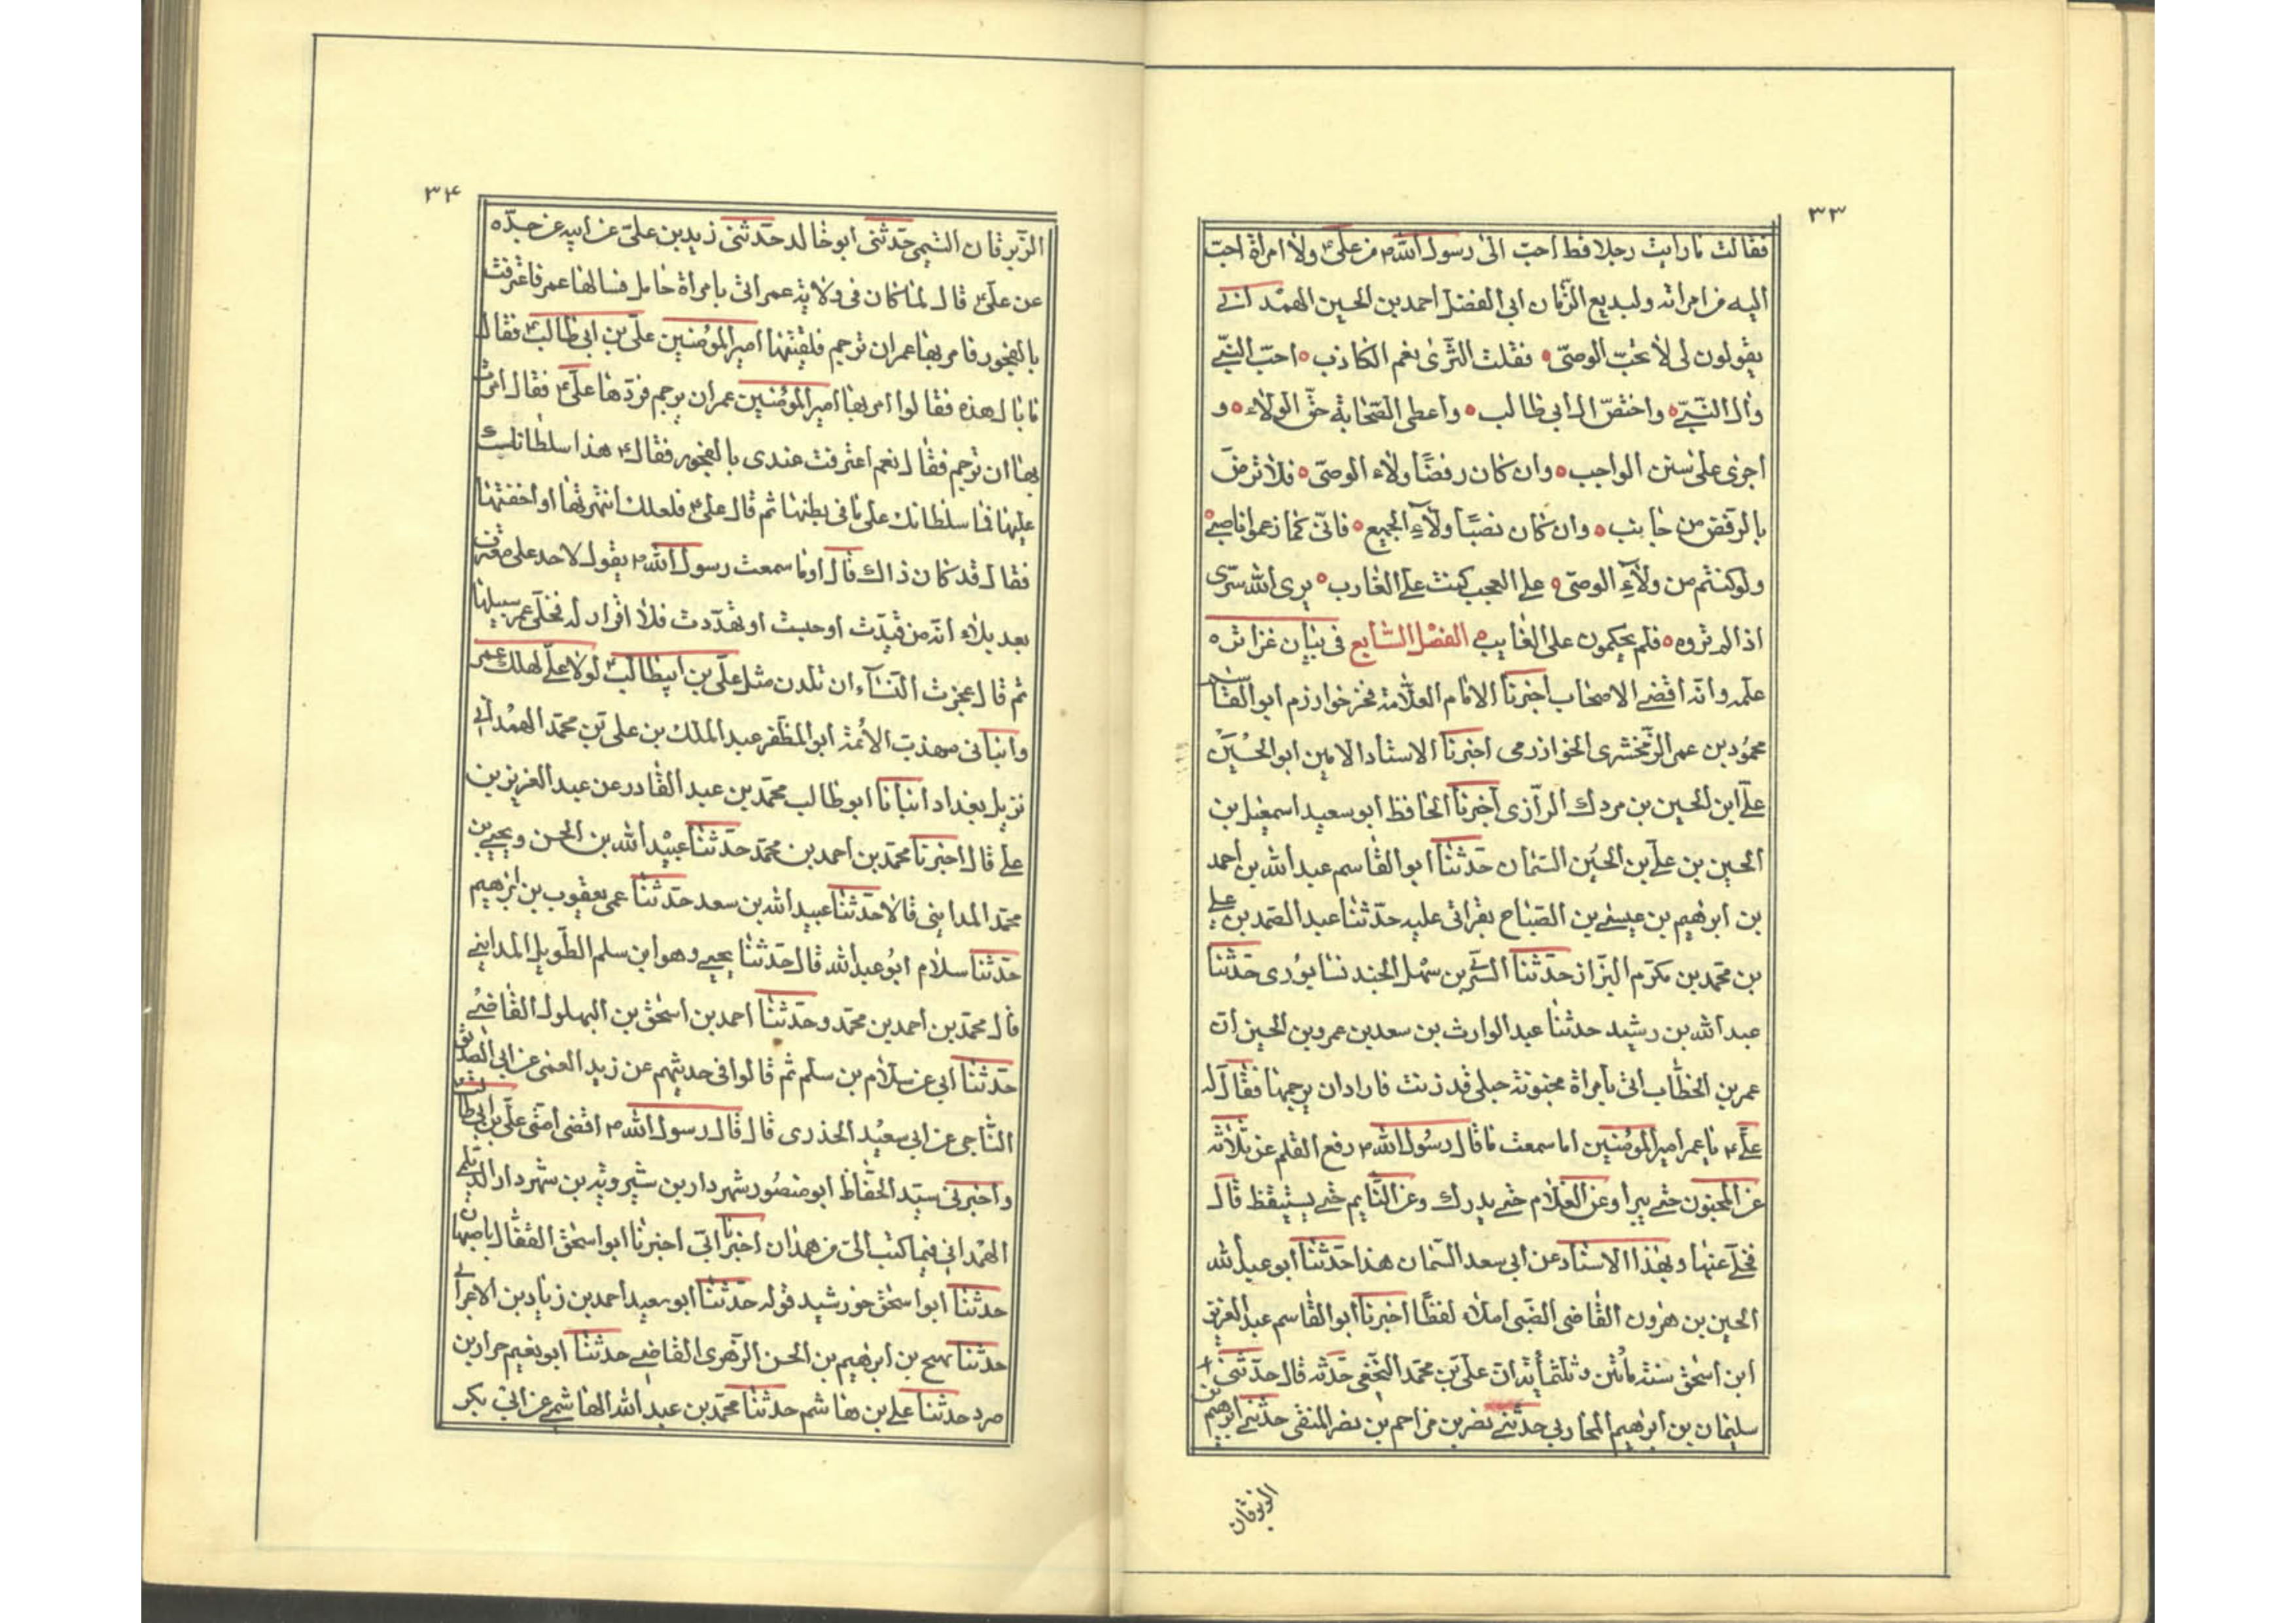 ٣٣
فقالت ما رايت رجلا قط احب الى رسول الله ص من على ع ولا امراة احب
اليه من امراته ولبديع الزمان ابي الفضل احمد بن الحسين الهمداني
يقولون لى لا تحب الوصى فقلت الثرى بفم الكاذب احب النبى
وآل النبى واختص آل ابى طالب واعطى الصحابة حق الولاء و
اجرى على سنن الواجب وان كان رفضا ولاء الوصى فلا ترض
بالرفض من جانب وان كان نصبا ولآء الجميع فانى كما زعموا ناصبى
ولو كنتم من ولآء الوصى على العجب كنت على الغارب يرى الله سرى
اذا لم تروه فلم يحكمون على الغايب الفصل السابع فى بيان غزارة
علمه وانه اقضى الاصحاب اخبرنا الامام العلامة فخر خوارزم ابو القاسم
محمود بن عمر الزمخشرى الخوارزمى اخبرنا الاستاد الامين ابو الحسين
على ابن الحسين بن مردك الرازى اخبرنا الحافظ ابو سعيد اسمعيل بن
الحسين بن على بن الحسين السمان حدثنا ابو القاسم عبد الله بن احمد
بن ابرهيم بن عيسى بن الصباح بقراتى عليه حدثنا عبد الصمد بن على
بن محمد بن مكرم البزاز حدثنا السرى بن سهل الجند نسابورى حدثنا
عبد الله بن رشيد حدثنا عبد الوارث بن سعد بن عمرو بن الحسين ان
عمر بن الخطاب اتى بامراة مجنونة حبلى قد زنت فاراد ان يرجمها فقال له
على ع يا عمر امير المؤمنين اما سمعت ما قال رسول الله ص رفع القلم عن ثلاثه
عن المجنون حتى يبرا وعن الغلام حتى يدرك وعن النايم حتى يستيقظ قال
فخلى عنها وبهذا الاسناد عن ابى سعد السمان هذا حدثنا ابو عبد الله
الحسين بن هرون القاضى الضبى املاء لفظا اخبرنا ابو القاسم عبد العزيز
ابن اسحق سنة ثلثمأية ان على بن محمد النخعى حدثه قال حدثنى
سليمان بن ابرهيم المحاربى حدثنى نصر بن مزاحم بن نصر المنقرى حدثنى ابرهيم بن
الزبرقان
٣٤
الزبرقان التيمى حدثنى ابو خالد حدثنى زيد بن على عن ابيه عن جده
عن على ع قال لما كان فى ولاية عمر اتى بامراة حامل فسالها عمر فاعترفت
بالفجور فامر بها عمر ان ترجم فلقيتها امير المؤمنين على بن ابى طالب ع فقال
ما بال هذه فقالوا امر بها امير المؤمنين عمر ان يرجم فردها على ع فقال امرت
بها ان ترجم فقال نعم اعترفت عندى بالفجور فقال ع هذا سلطانك
عليها فما سلطانك على ما فى بطنها ثم قال على ع فلعلك انتهرتها او اخفتها
فقال قد كان ذاك قال اوما سمعت رسول الله ص يقول لا حد على معترف
بعد بلاء انه من قيدت او حبست او تهددت فلا اقرار له فخلى عمر سبيلها
ثم قال عجزت النسآء ان تلدن مثل على بن ابيطالب ع لولا على لهلك عمر
وانبانى مهذب الائمة ابو المظفر عبد الملك بن على بن محمد الهمدانى
نزيل بغداد انبانا ابو طالب محمد بن عبد القادر عن عبد العزيز بن
على قال اخبرنا محمد بن احمد بن محمد حدثنا عبيد الله بن الحسن ويحيى بن
محمد المداينى قالا حدثنا عبيد الله بن سعد حدثنا عمى يعقوب بن ابرهيم
حدثنا سلام ابو عبد الله قال حدثنا يحيى وهو ابن سلم الطويل المداينى
قال محمد بن احمد بن محمد وحدثنا احمد بن اسحق بن البهلول القاضى
حدثنا ابى عن سلام بن سلم ثم قالوا فى حديثهم عن زيد العمى عن ابى الصديق
الناجى عن ابى سعيد الخدرى قال قال رسول الله ص اقضى امتى على بن ابى طالب
واخبرنى سيد الحفاظ ابو منصور شهردار بن شيرويه بن شهردار الديلمى
الهمدانى فيما كتب الى من همدان اخبرنا ابى اخبرنا ابو اسحق القفال باصبهان
حدثنا ابو اسحق خورشيد قوله حدثنا ابو سعيد احمد بن زياد بن الاعرابى
حدثنا نجيح بن ابرهيم بن الحسن الزهرى القاضى حدثنا ابو نعيم ضرار بن
صرد حدثنا على بن هاشم حدثنا محمد بن عبد الله الهاشمى عن ابى بكر